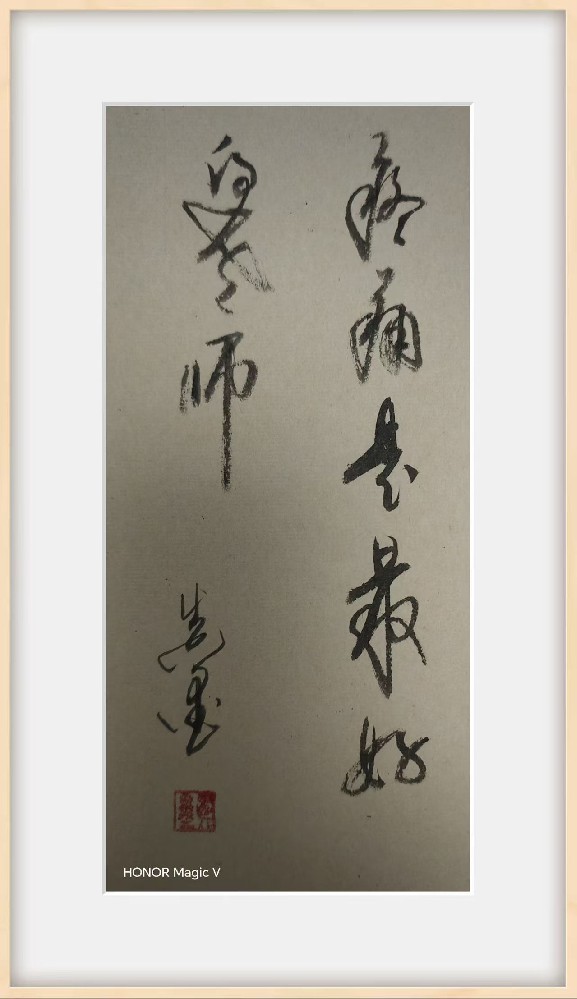 疼痛是最好
的老师
HONOR Magic V